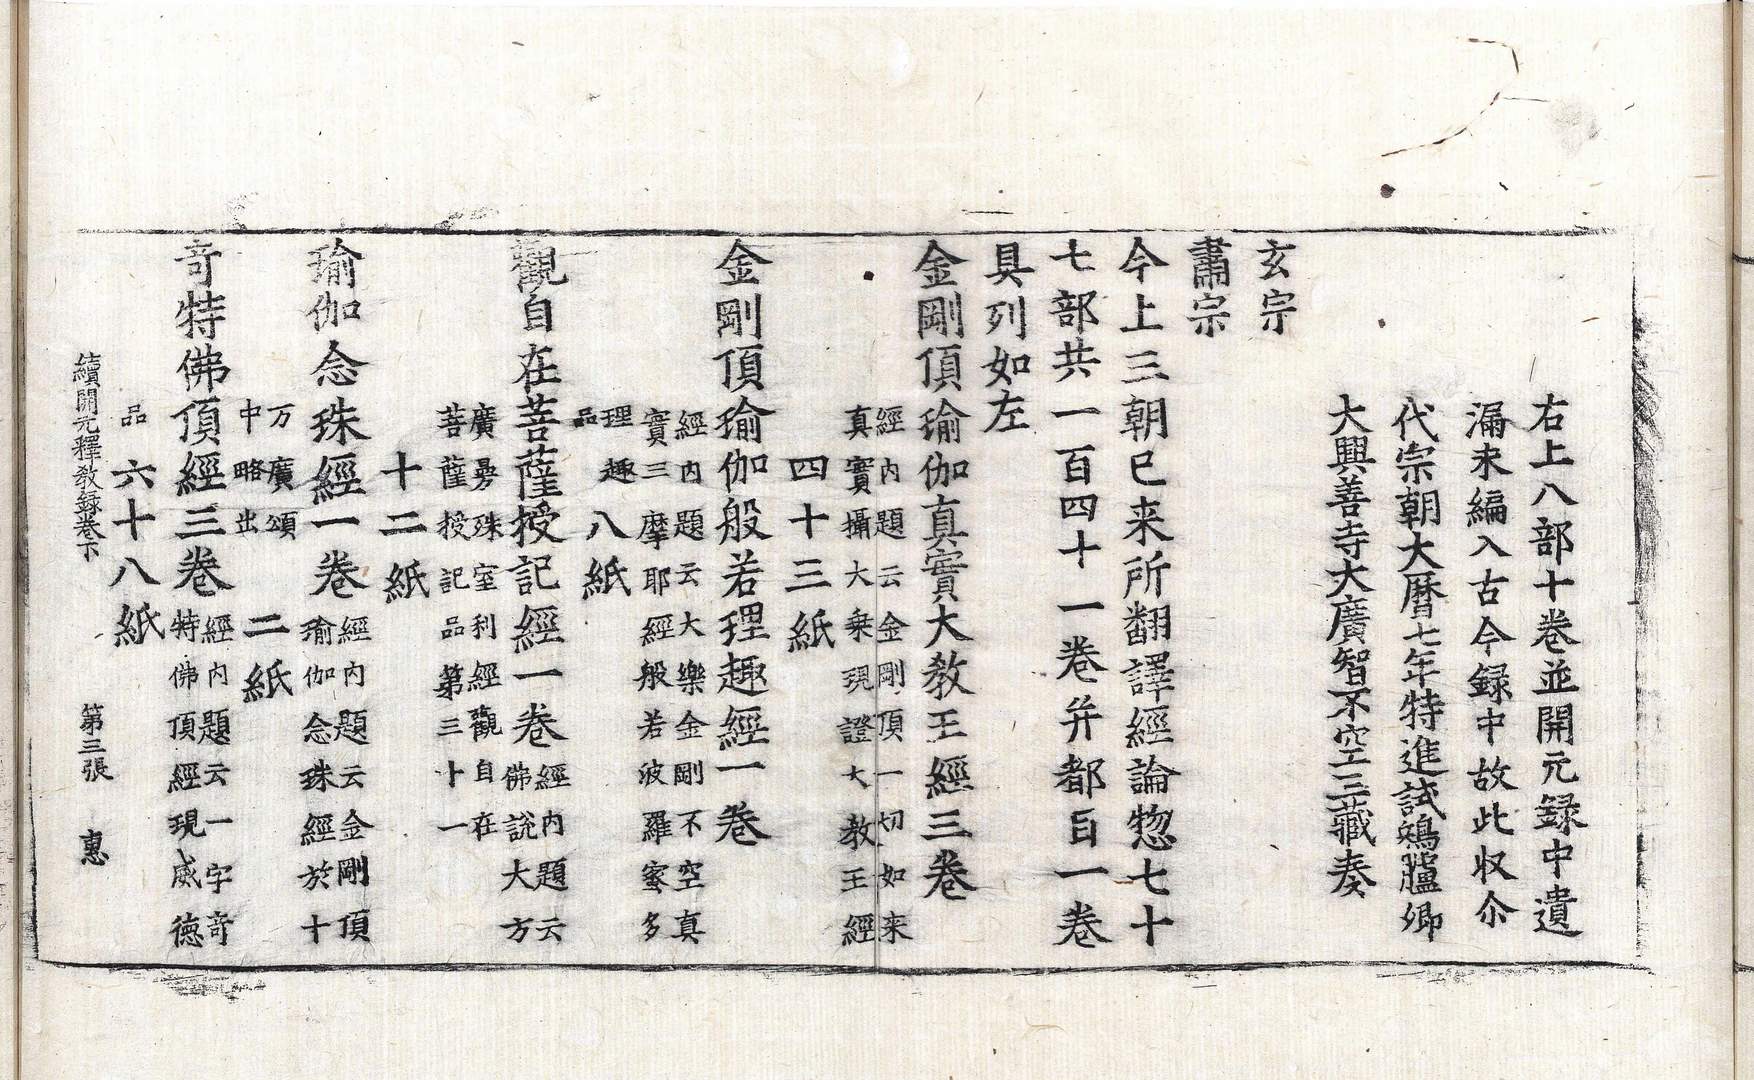 右上八部十卷並開元録中遺
漏未編入古今録中故此収尒
代宗朝大曆七年特進試鴻臚卿
大興善寺大廣智不空三藏奏
玄宗
肅宗
今上三朝已来所翻譯經論惣七十
七部共一百四十一卷并都目一卷
具列如左
金剛頂瑜伽真實大教王經三卷
經内題云金剛頂一切如来
真實攝大乘現證大教王經
四十三紙
金剛頂瑜伽般若理趣經一卷
經内題云大樂金剛不空真
實三摩耶經般若波羅蜜多
理趣
品
八紙
觀自在菩薩授記經一卷
經内題云
佛説大方
廣曼殊室利經觀自在
菩薩授記品第三十一
十二紙
瑜伽念珠經一卷
經内題云金剛頂
瑜伽念珠經於十
万廣頌
中略出
二紙
竒特佛頂經三卷
經内題云一字竒
特佛頂經現威徳
品
六十八紙
續開元釋教録卷下 第三張 惠